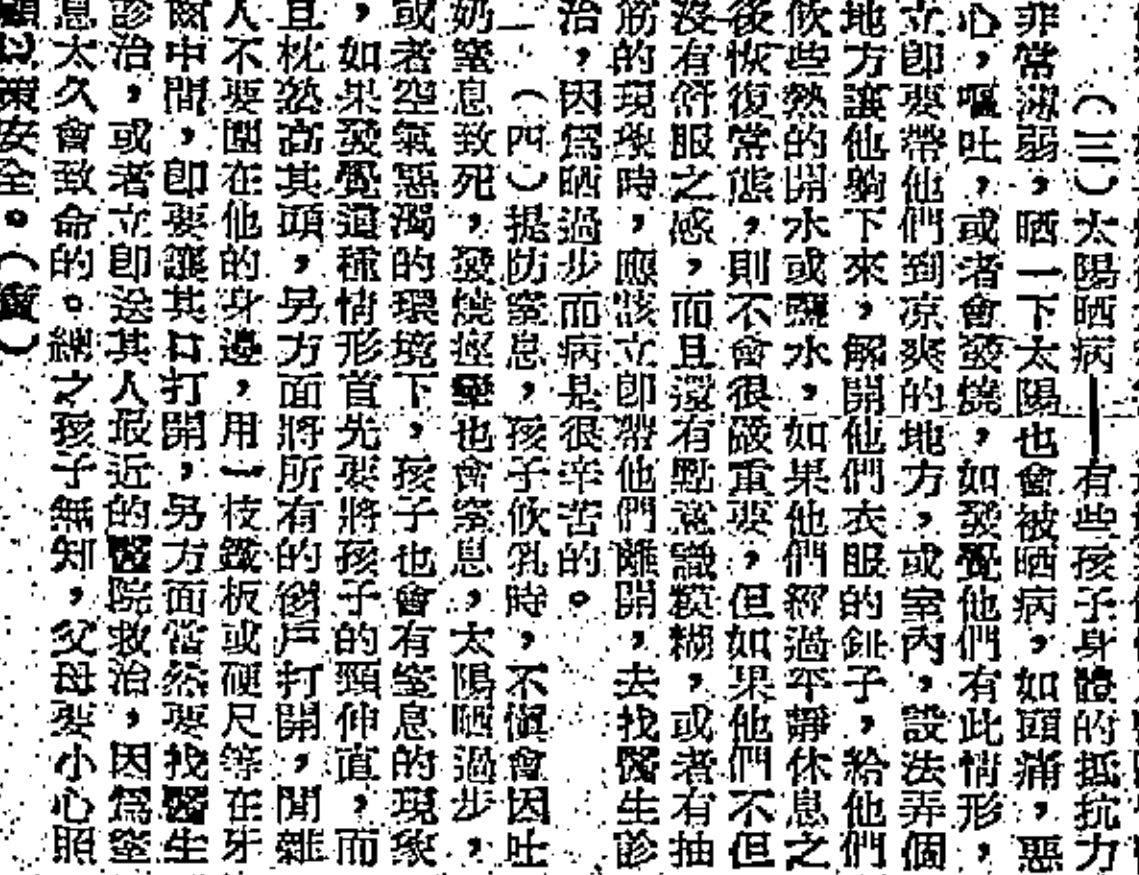 （三）太陽晒病——有些孩子身體的抵抗力
非常薄弱，晒一下太陽也會被晒病，如頭痛，惡
心，嘔吐，或者會發燒，如發覺他們有此情形，
立即要帶他們到凉爽的地方，或室內，設法弄個
地方讓他躺下來，解開他們衣服的鈕子，給他們
飲些熱的開水或鹽水，如果他們經過平靜休息之
後恢復常態，則不會很嚴重要，但如果他們不但
沒有舒服之感，而且還有點意識糢糊，或者有抽
筋的現象時，應該立即帶他們離開，去找醫生診
治，因爲晒過步而病是很辛苦的。
（四）提防窒息，孩子飲乳時，不愼會因吐
奶窒息致死，發燒痙攣也會窒息，太陽晒過步，
或者空氣惡濁的環境下，孩子也會有窒息的現象
，如果發覺這種情形首先要將孩子的頸伸直，而
且枕墊高其頭，另方面將所有的窗戶打開，閒雜
人不要圍在他的身邊，用一枝鐵板或硬尺等在牙
齒中間，即要讓其口打開，另方面當然要找醫生
診治，或者立即送其人最近的醫院救治，因爲窒
息太久會致命的。總之孩子無知，父母要小心照
顧以策安全。（資）